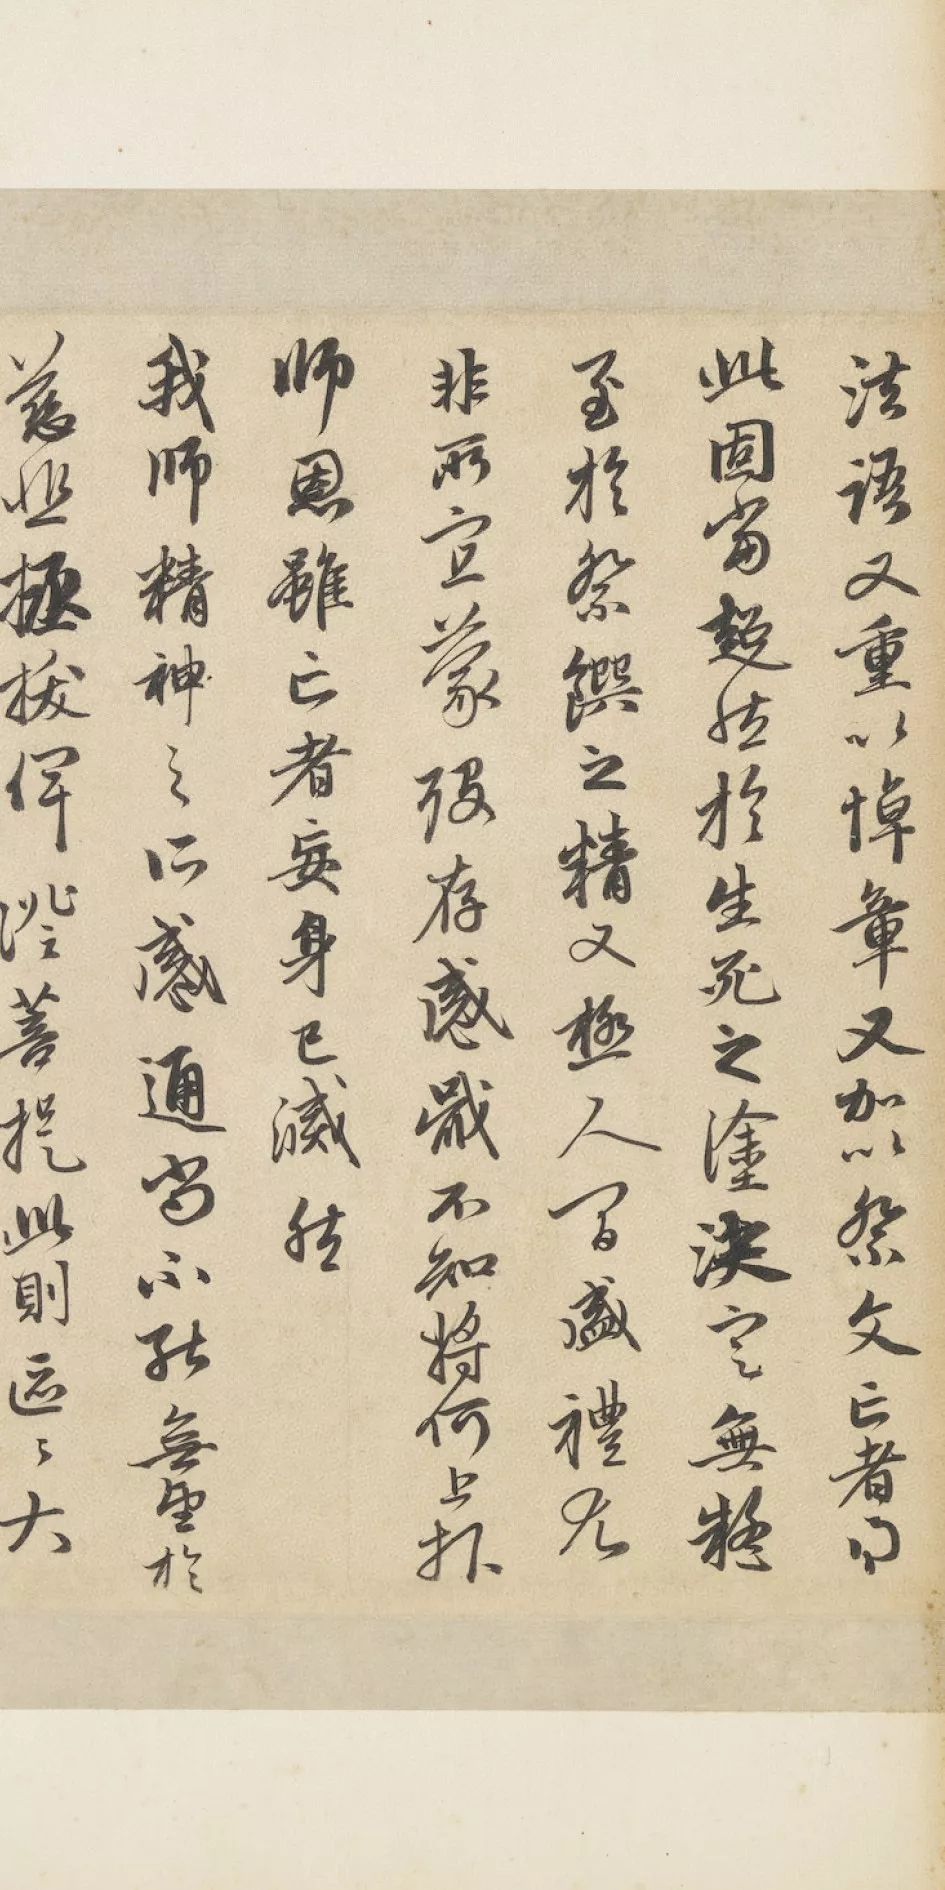 法語又重以悼章又加以祭文亡者有
此固當超然於生死之塗決定無疑
至於祭饌之精又極人間盛禮尤
非所宜蒙歿存感戴不知將何上報
師恩雖亡者妄身已滅然
我師精神之所感通尚不能無望於
慈悲拯拔俾證菩提此則區區大